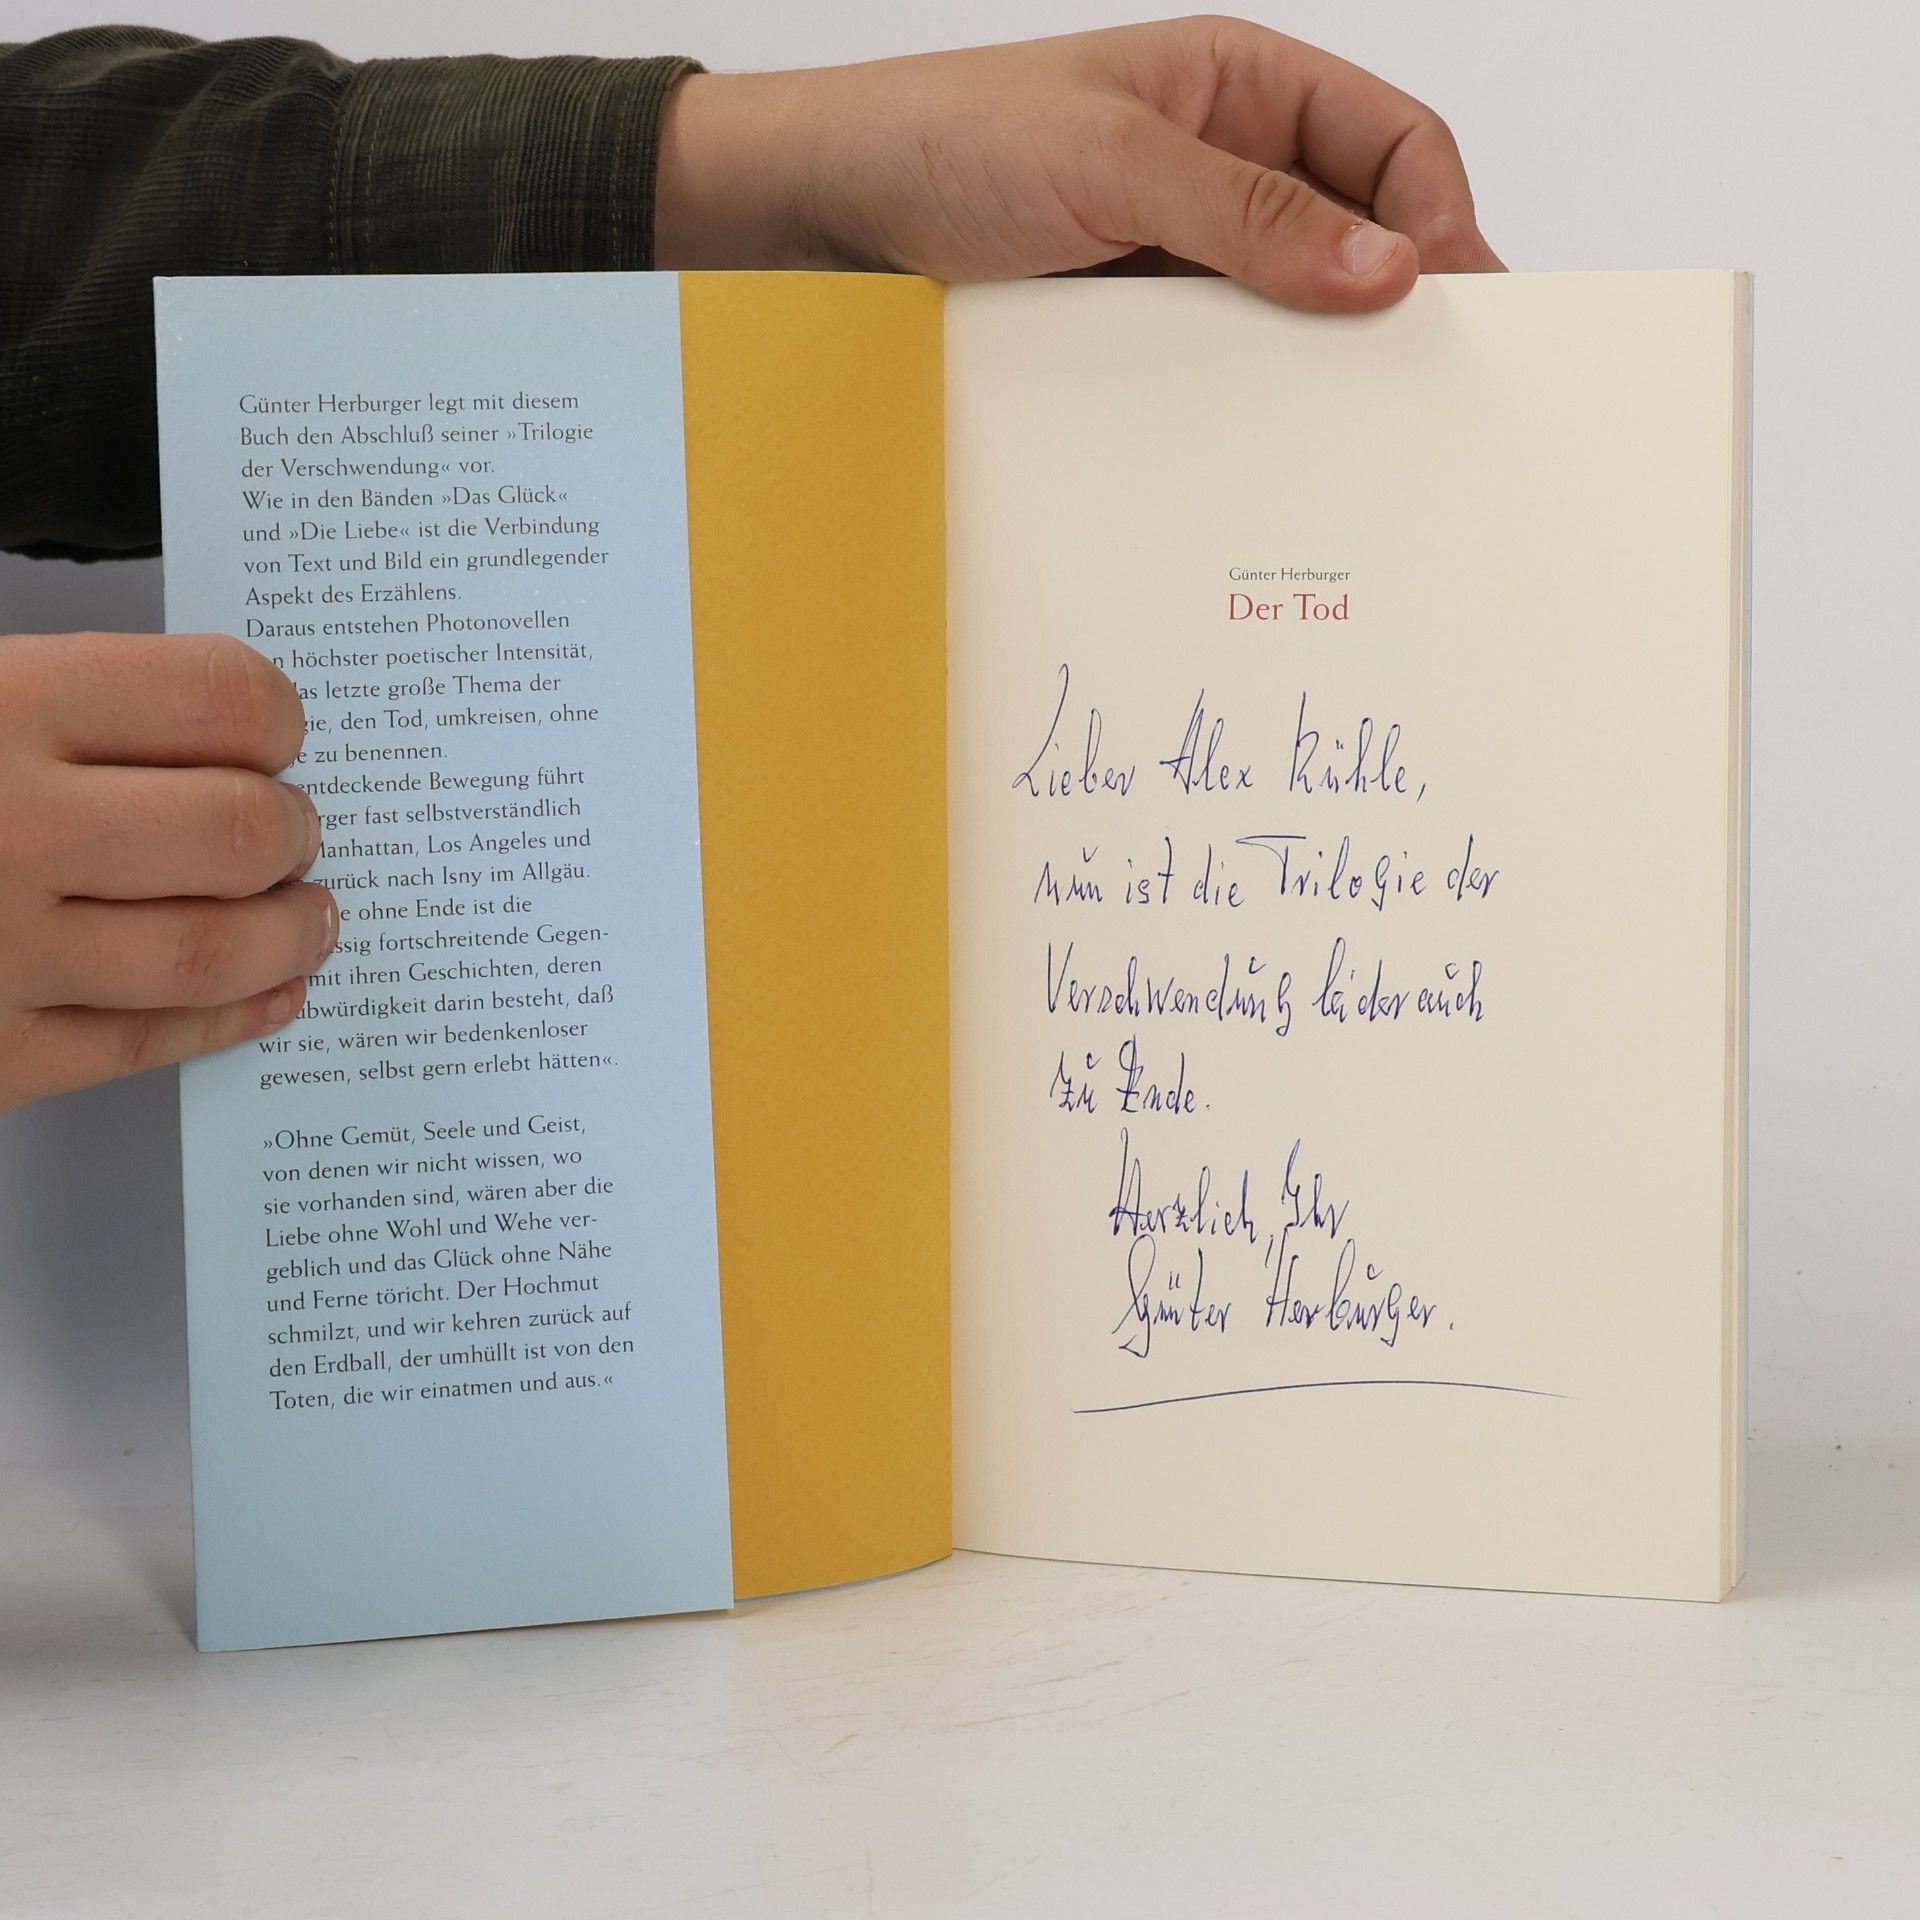 Günter Herburger legt mit diesem
Buch den Abschluß seiner »Trilogie
der Verschwendung« vor.
Wie in den Bänden »Das Glück«
und »Die Liebe« ist die Verbindung
von Text und Bild ein grundlegender
Aspekt des Erzählens.
Daraus entstehen Photonovellen
höchster poetischer Intensität,
letzte große Thema der
den Tod, umkreisen, ohne
zu benennen.
entdeckende Bewegung führt
fast selbstverständlich
Manhattan, Los Angeles und
zurück nach Isny im Allgäu.
ohne Ende ist die
fortschreitende Gegen-
mit ihren Geschichten, deren
darin besteht, daß
wir sie, wären wir bedenkenloser
gewesen, selbst gern erlebt hätten«.
»Ohne Gemüt, Seele und Geist,
von denen wir nicht wissen, wo
sie vorhanden sind, wären aber die
Liebe ohne Wohl und Wehe ver-
geblich und das Glück ohne Nähe
und Ferne töricht. Der Hochmut
schmilzt, und wir kehren zurück auf
den Erdball, der umhüllt ist von den
Toten, die wir einatmen und aus.«
Günter Herburger
Der Tod
Lieber Alex Rühle,
nun ist die Trilogie der
Verschwendung leider auch
zu Ende.
Herzlich, Ihr
Günter Herburger.